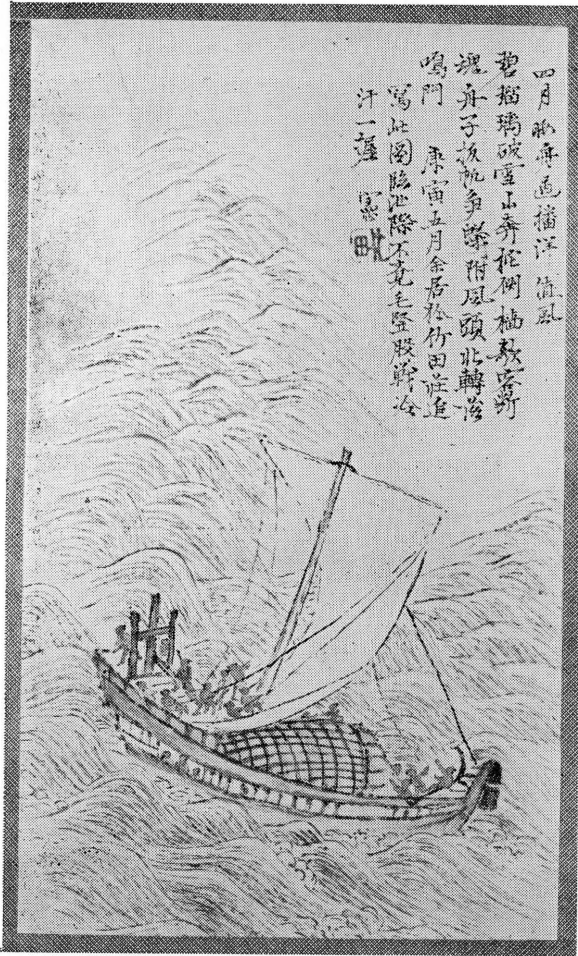 四月晦舟過播洋值風
碧瑠璃破雪山奔柁側柚敧客斷
魂舟子扳帆争際附風頭北轉落
鳴門 庚寅五月余居於竹田荘追
寫此圖臨池際不覚毛竪股戰冷
汗一握 憲